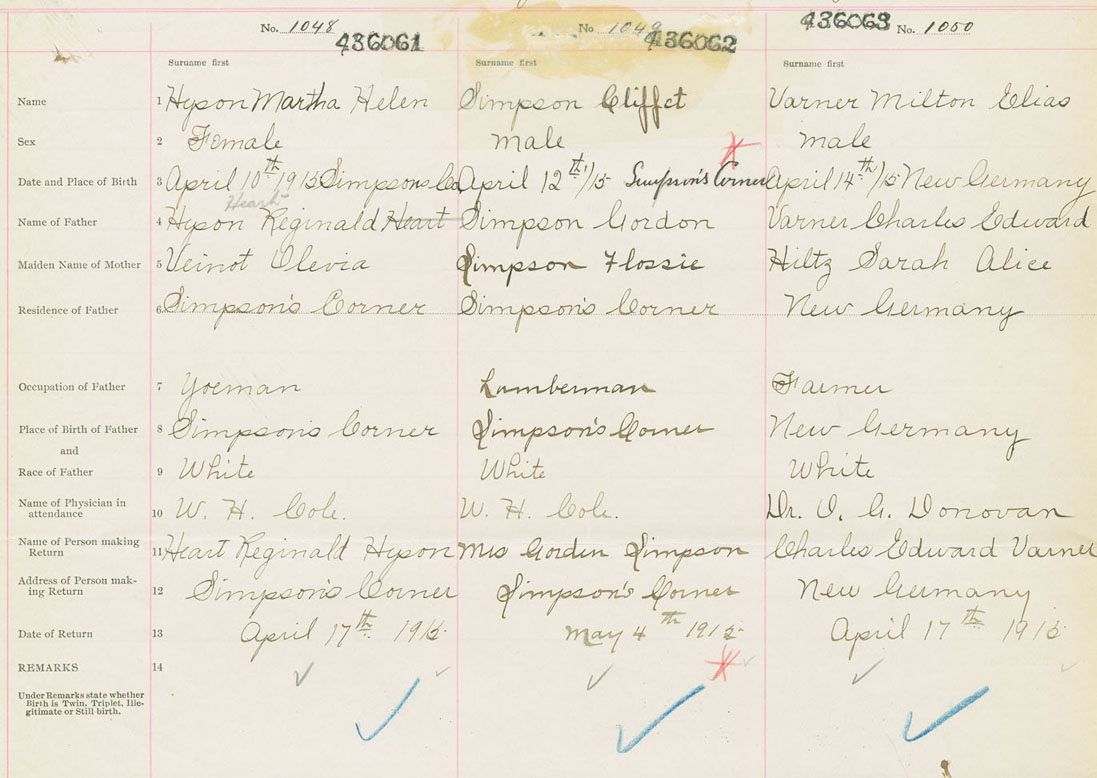 No. 1048 436061 No 1049 436062 436063 No. 1050
Surname first Surname first Surname first
Name 1 Hyson Martha Helen Simpson Cliffet Varner Milton Elias
Sex 2 Female male male
Date and Place of Birth 3 April 10th 1915 Simpsons Co April 12th/15 Simpson's Corner April 14th/15 New Germany
Heart
Name of Father 4 Hyson Reginald Heart Simpson Gordon Varner Charles Edward
Maiden Name of Mother 5 Veinot Olevia Simpson Flossie Hiltz Sarah Alice
Residence of Father 6 Simpson's Corner Simpson's Corner New Germany
Occupation of Father 7 Yoeman Lumberman Farmer
Place of Birth of Father 8 Simpson's Corner Simpson's Corner New Germany
and
Race of Father 9 White White White
Name of Physician in
attendance 10 W. H. Cole. W. H. Cole. Dr. O. G. Donovan
Name of Person making
Return 11 Heart Reginald Hyson Mrs Gorden Simpson Charles Edward Varner
Address of Person mak-
ing Return 12 Simpson's Corner Simpson's Corner New Germany
Date of Return 13 April 17th 1915 May 4th 1915 April 17th 1915
REMARKS 14
Under Remarks state whether
Birth is Twin, Triplet, Ille-
gitimate or Still-birth.